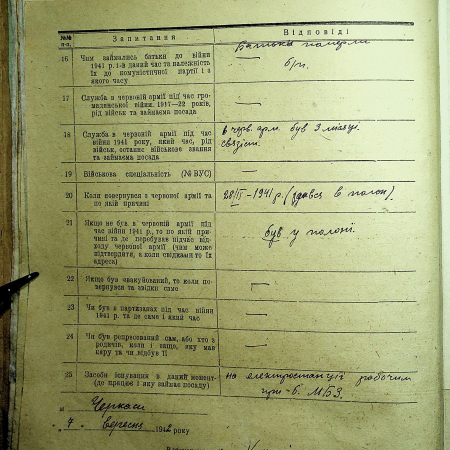 №№ п-п. Запитання Відповіді
16 Чим займались батьки до війни
1941 р. і-в даний час та належність
їх до комуністичної партії і з
якого часу
Батьки померли
б/п.
17 Служба в червоній армії під час гро-
мадянської війни, 1917—22 років,
рід військ та займаєма посада
—
18 Служба в червоній армії під час
війни 1941 року, який час, рід
військ, останнє військове звання
та займаєма посада
в черв. арм. був 3 місяці
19 Військова спеціальність (№ ВУС)
—
20 Коли повернувся з червоної армії та
по якій причині
1941 р. (здався в полон).
21 Якщо не був в червоній армії під
час війни 1941 р., то по якій при-
чині та де перебував підчас від-
ходу червоної армії (чим може
підтвердити, а коли свідками то їх
адреса)
був у полоні.
22 Якщо був евакуйований, то коли по-
вернувся та звідки саме
—
23 Чи був в партизанах під час війни
1941 р. та де саме і який час
—
24 Чи був репресований сам, або хто з
родичів, коли і защо, яку мав
кару та чи відбув її
—
25 Засоби існування в даний момент
(де працює і яку займає посаду)
на електростанції робочим
МБЗ.
м Черкаси
„ 7 „ вересня 1942 року